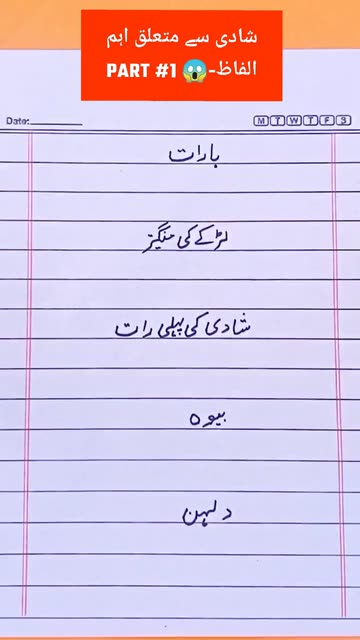 شادی سے متعلق اہم
الفاظ-😱 PART #1
Date:
M T W T F S
بارات
لڑکے کی منگیتر
شادی کی پہلی رات
بیوہ
دلہن